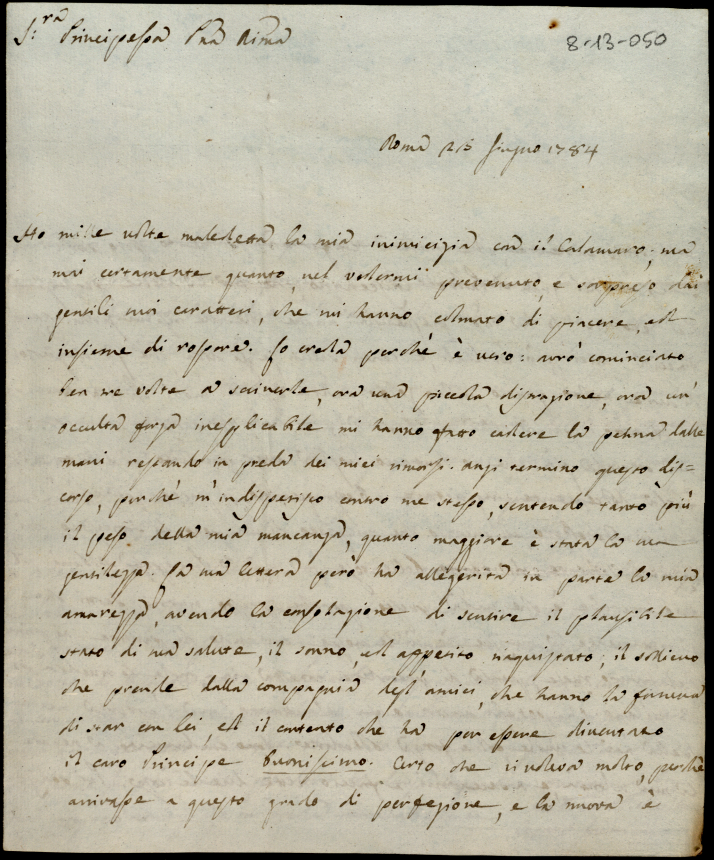 S:ra Principessa Pna Rima
8-13-050
Roma 23 Giugno 1784
Ho mille volte maledetta la mia inimicizia con il Calamaro; ma
mai certamente quanto, nel vedermi prevenuto, e sorpreso dai
gentili suoi caratteri, che mi hanno colmato di piacere, ed
insieme di rossore. Lo creda perché è vero: avrò cominciato
ben tre volte a scriverle, ora una piccola distrazione, ora un'
occulta forza inesplicabile mi hanno fatto cadere la penna dalle
mani restando in preda dei miei rimorsi. anzi termino questo dis=
corso, perché m'indispettisco contro me stesso, sentendo tanto più
il peso della mia mancanza, quanto maggiore è stata la sua
gentilezza. La sua lettera però ha allegerita in parte la mia
amarezza, avendo la consolazione di sentire il plausibile
stato di sua salute, il sonno, ed appetito riaquistato, il sollievo
che prende dalla compagnia degl'amici, che hanno la fortuna
di star con lei, ed il contento che ha per essere diventato
il caro Principe buonissimo. Certo che ci voleva molto, perché
arrivasse a questo grado di perfezione, e la nuova è